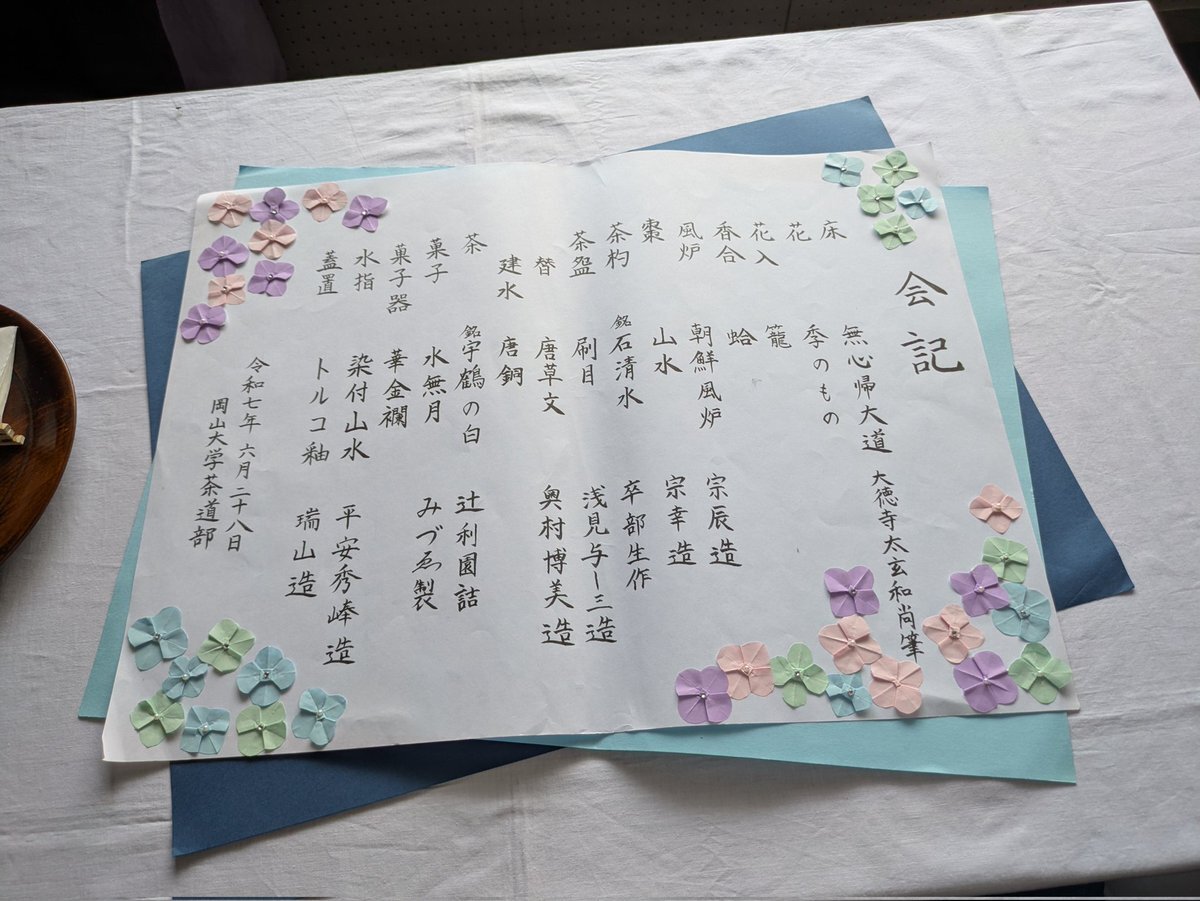 会記
床 無心帰大道 大徳寺太玄和尚筆
花 季のもの
花入 籠
香合 蛤
風炉 朝鮮風炉 宗辰造
棗 山水 宗幸造
茶杓 銘石清水 卒部生作
茶盌 刷目 浅見与し三造
替 唐草文 奥村博美造
建水 唐銅
茶 銘宇鶴の白 辻利園詰
菓子 水無月 みづゑ製
菓子器 華金襴
水指 染付山水 平安秀峰造
蓋置 トルコ釉 瑞山造
令和七年 六月二十八日
岡山大学茶道部